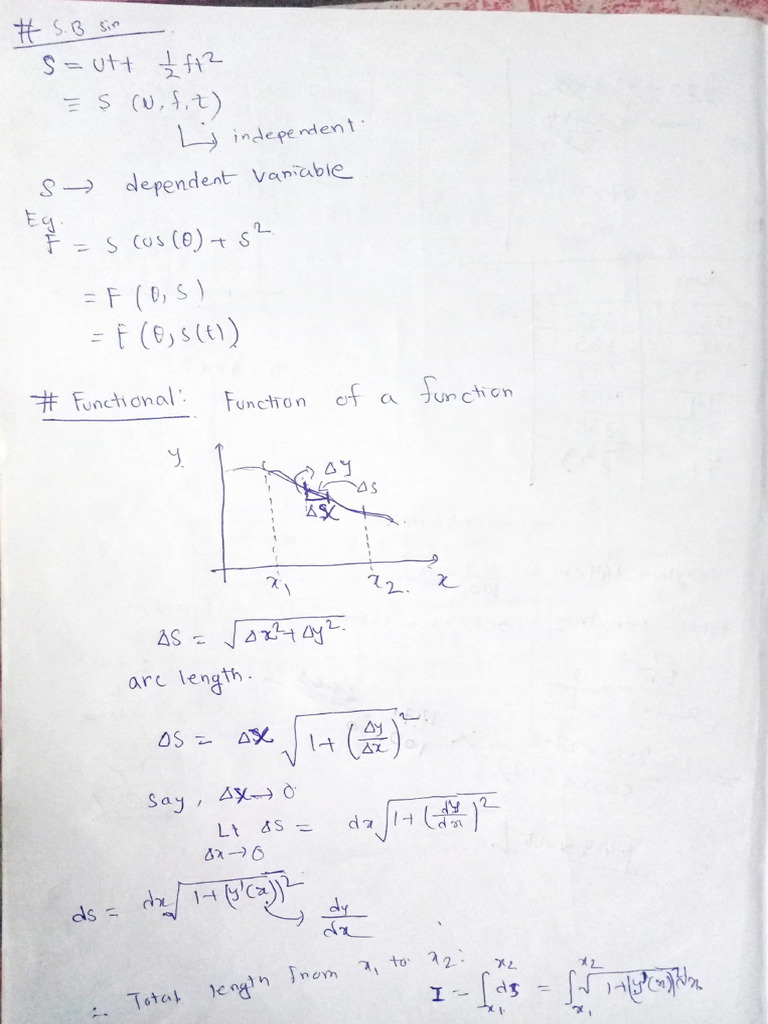 # S.B sin
S = ut + 1/2 ft²
≡ S (u, f, t)
↳ independent.
S → dependent variable
Eg.
F = s cos(θ) + s²
= F (θ, s)
= F (θ, s(t))
# Functional: Function of a function
y
Δy
Δs
Δx
x₁ x₂ x
Δs = √(Δx² + Δy²)
arc length.
Δs = Δx √(1 + (Δy/Δx)²)
say, Δx → 0
Lt Δs = dx √(1 + (dy/dx)²)
Δx → 0
ds = dx √(1 + (y'(x))²) → dy/dx
∴ Total length from x₁ to x₂: I = ∫ₓ₁^x₂ ds = ∫ₓ₁^x₂ √(1 + (y'(x))²) dx